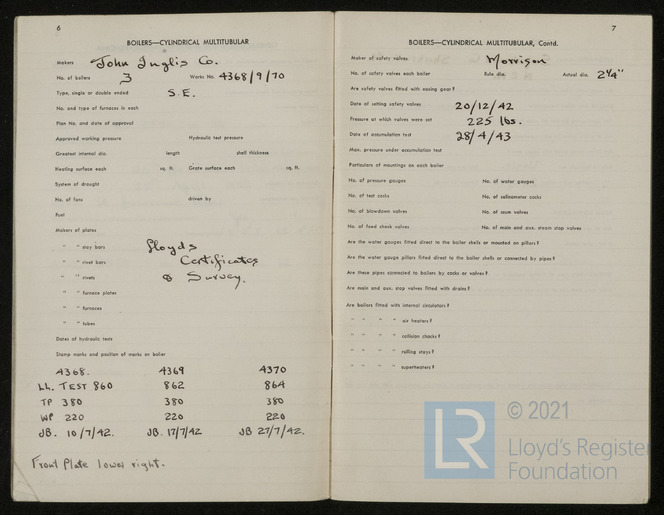 6
BOILERS—CYLINDRICAL MULTITUBULAR
Makers John Inglis Co.
No. of boilers 3 Works No. 4368/9/70
Type, single or double ended S.E.
No. and type of furnaces in each
Plan No. and date of approval
Approved working pressure Hydraulic test pressure
Greatest internal dia. length shell thickness
Heating surface each sq. ft. Grate surface each sq. ft.
System of draught
No. of fans driven by
Fuel
Makers of plates
" " stay bars Lloyds
" " rivet bars Certificates
" " rivets & Survey.
" " furnace plates
" " furnaces
" " tubes
Dates of hydraulic tests
Stamp marks and position of marks on boiler
4368. 4369 4370
LL. TEST 860 862 864
TP 380 380 380
WP 220 220 220
JB. 10/7/42. JB. 17/7/42 JB 27/7/42.
Front Plate lower right.
7
BOILERS—CYLINDRICAL MULTITUBULAR, Contd.
Maker of safety valves Morrison
No. of safety valves each boiler Rule dia. Actual dia. 2¼"
Are safety valves fitted with easing gear?
Date of setting safety valves 20/12/42
Pressure at which valves were set 225 lbs.
Date of accumulation test 28/4/43
Max. pressure under accumulation test
Particulars of mountings on each boiler
No. of pressure gauges No. of water gauges
No. of test cocks No. of salinometer cocks
No. of blowdown valves No. of scum valves
No. of feed check valves No. of main and aux. steam stop valves
Are the water gauges fitted direct to the boiler shells or mounted on pillars?
Are the water gauge pillars fitted direct to the boiler shells or connected by pipes?
Are these pipes connected to boilers by cocks or valves?
Are main and aux. stop valves fitted with drains?
Are boilers fitted with internal circulators?
" " " " air heaters?
" " " " collision chocks?
" " " " rolling stays?
" " " " superheaters?
LR
© 2021
Lloyd's Register
Foundation